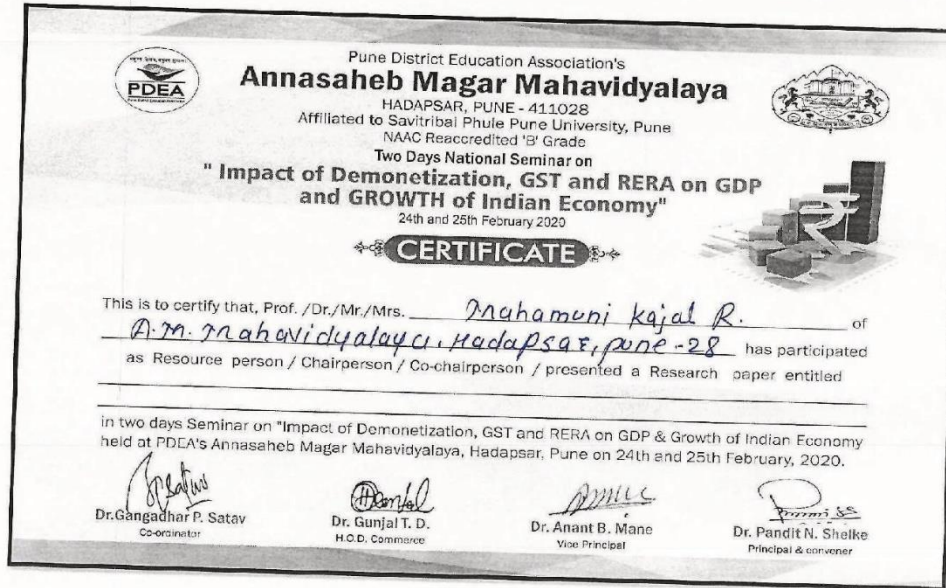 Pune District Education Association's
Annasaheb Magar Mahavidyalaya
HADAPSAR, PUNE - 411028
Affiliated to Savitribai Phule Pune University, Pune
NAAC Reaccredited 'B' Grade
Two Days National Seminar on
" Impact of Demonetization, GST and RERA on GDP
and GROWTH of Indian Economy"
24th and 25th February 2020
CERTIFICATE
PDEA
This is to certify that, Prof. /Dr./Mr./Mrs. Mahamuni Kajal R. of
A.M. Mahavidyalaya, Hadapsar, pune-28 has participated
as Resource person / Chairperson / Co-chairperson / presented a Research paper entitled
in two days Seminar on "Impact of Demonetization, GST and RERA on GDP & Growth of Indian Economy
held at PDEA's Annasaheb Magar Mahavidyalaya, Hadapsar, Pune on 24th and 25th February, 2020.
Dr.Gangadhar P. Satav
Co-ordinator
Dr. Gunjal T. D.
H.O.D. Commerce
Dr. Anant B. Mane
Vice Principal
Dr. Pandit N. Shelke
Principal & convener